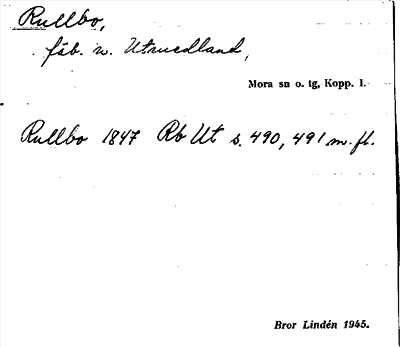 Rullbo,
fäb. n. Utmedland,
Mora sn o. tg, Kopp. l.
Rullbo 1847 Rb Ut s. 490, 491 m. fl.
Bror Lindén 1945.